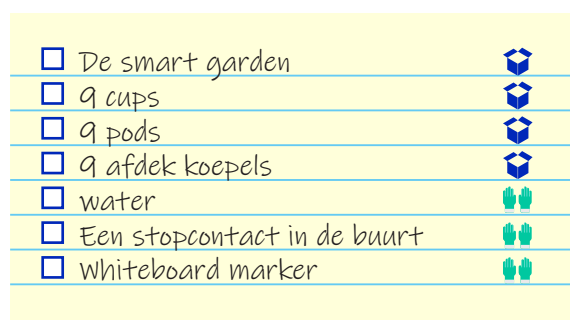 De smart garden
9 cups
9 pods
9 afdek koepels
water
Een stopcontact in de buurt
Whiteboard marker